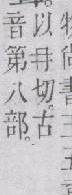 尚書
。以冄切。古
音第八部。